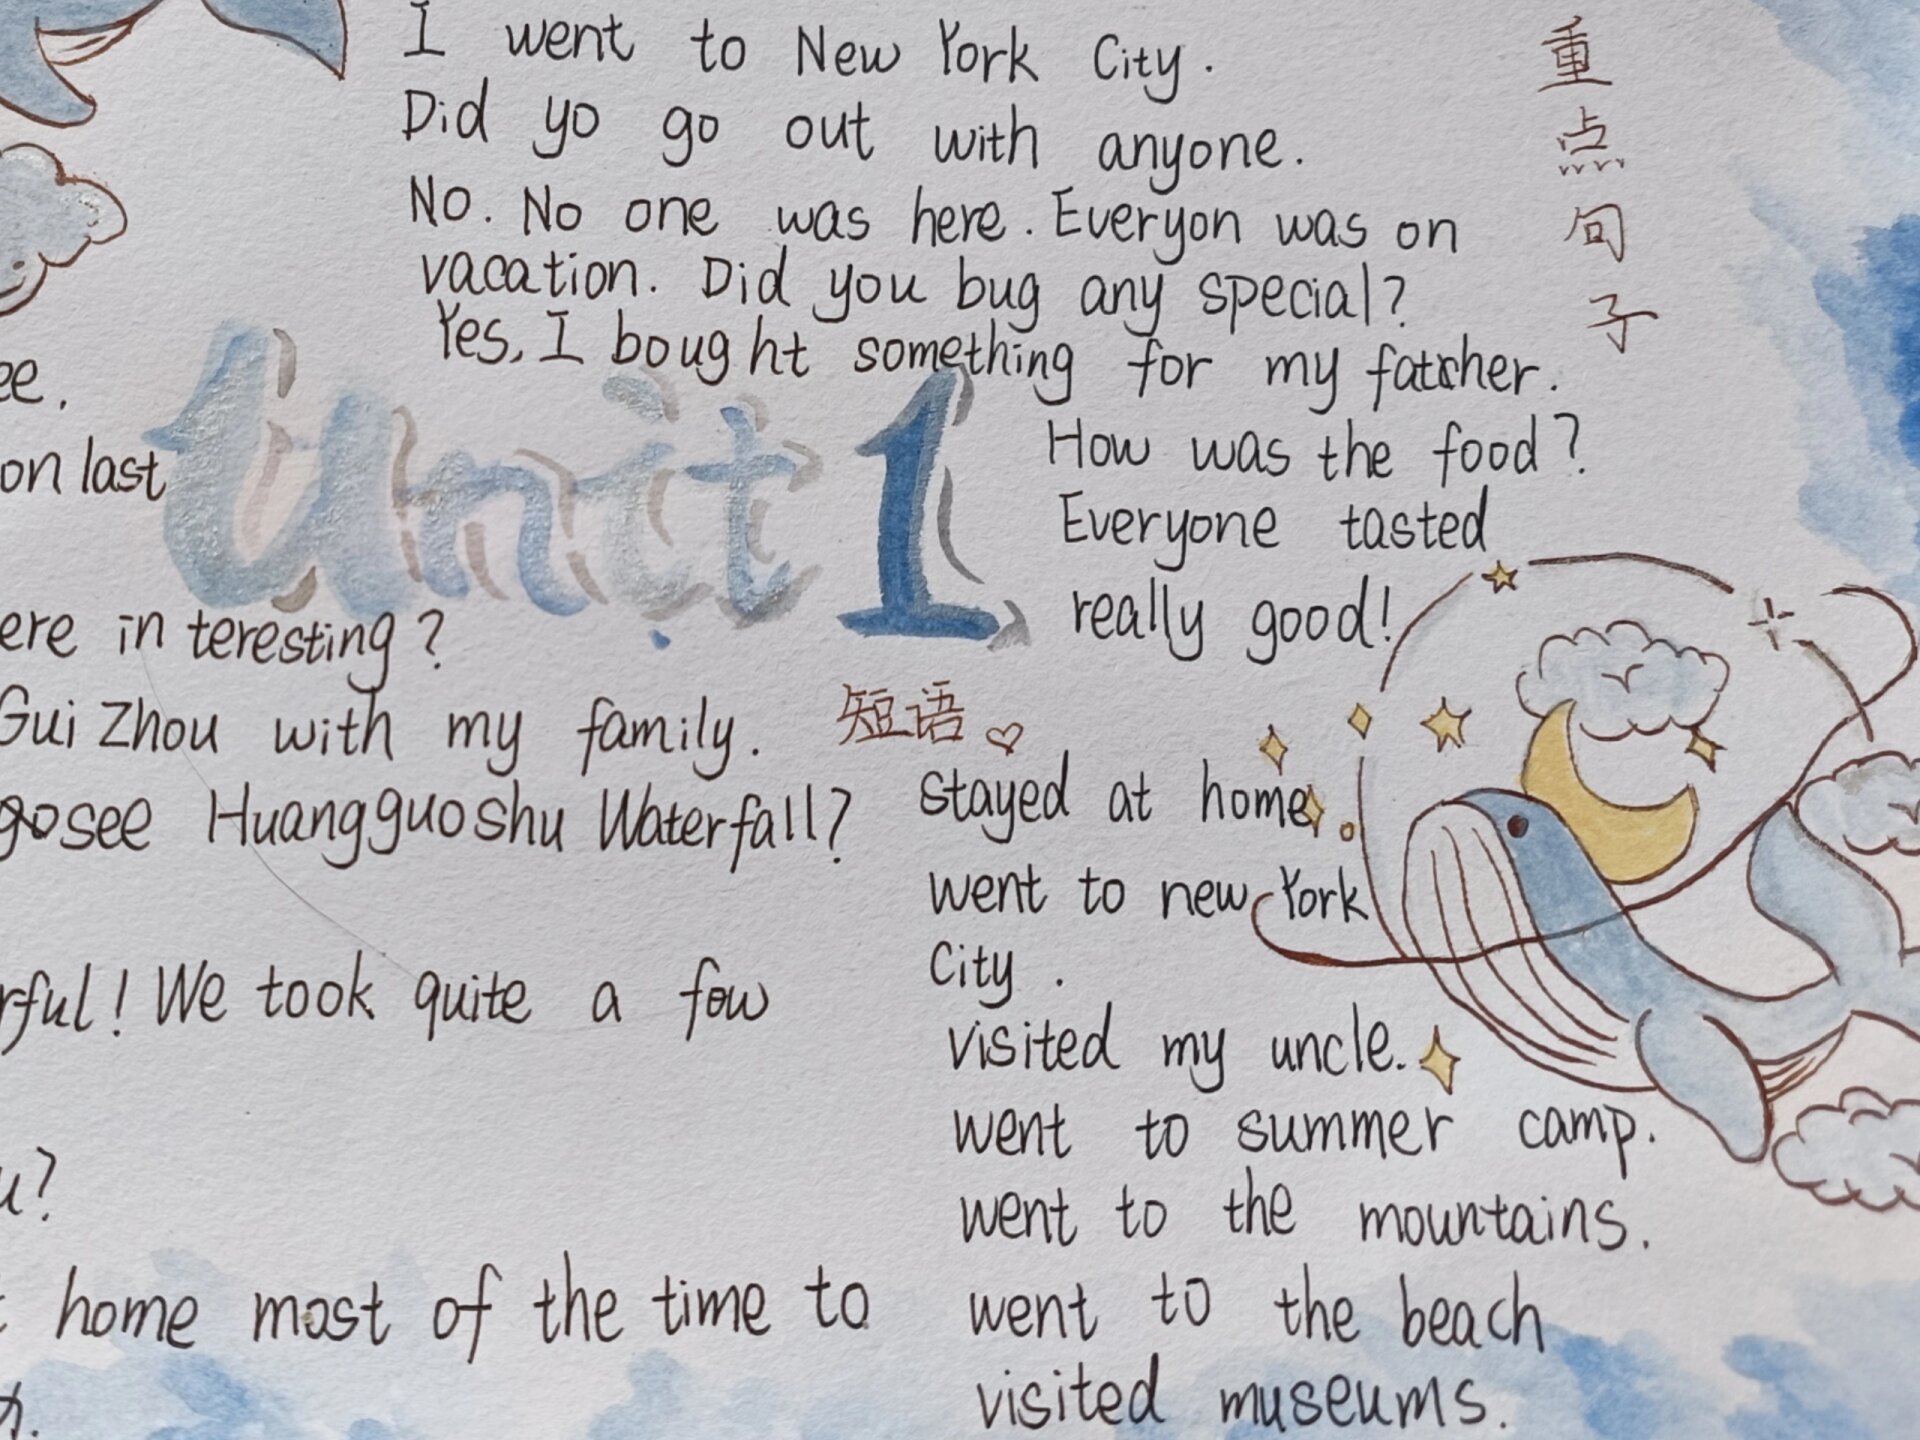 I went to New York City.
Did yo go out with anyone.
No. No one was here. Everyon was on
vacation. Did you bug any special?
Yes, I bought something for my fatcher.
How was the food?
Everyone tasted
really good!
重点句子
Unit 1
ee.
on last
ere in teresting?
Gui Zhou with my family.
go see Huangguoshu Waterfall?
rful! We took quite a few
u?
home most of the time to
短语
stayed at home
went to new York
City.
visited my uncle.
went to summer camp.
went to the mountains.
went to the beach
visited museums.